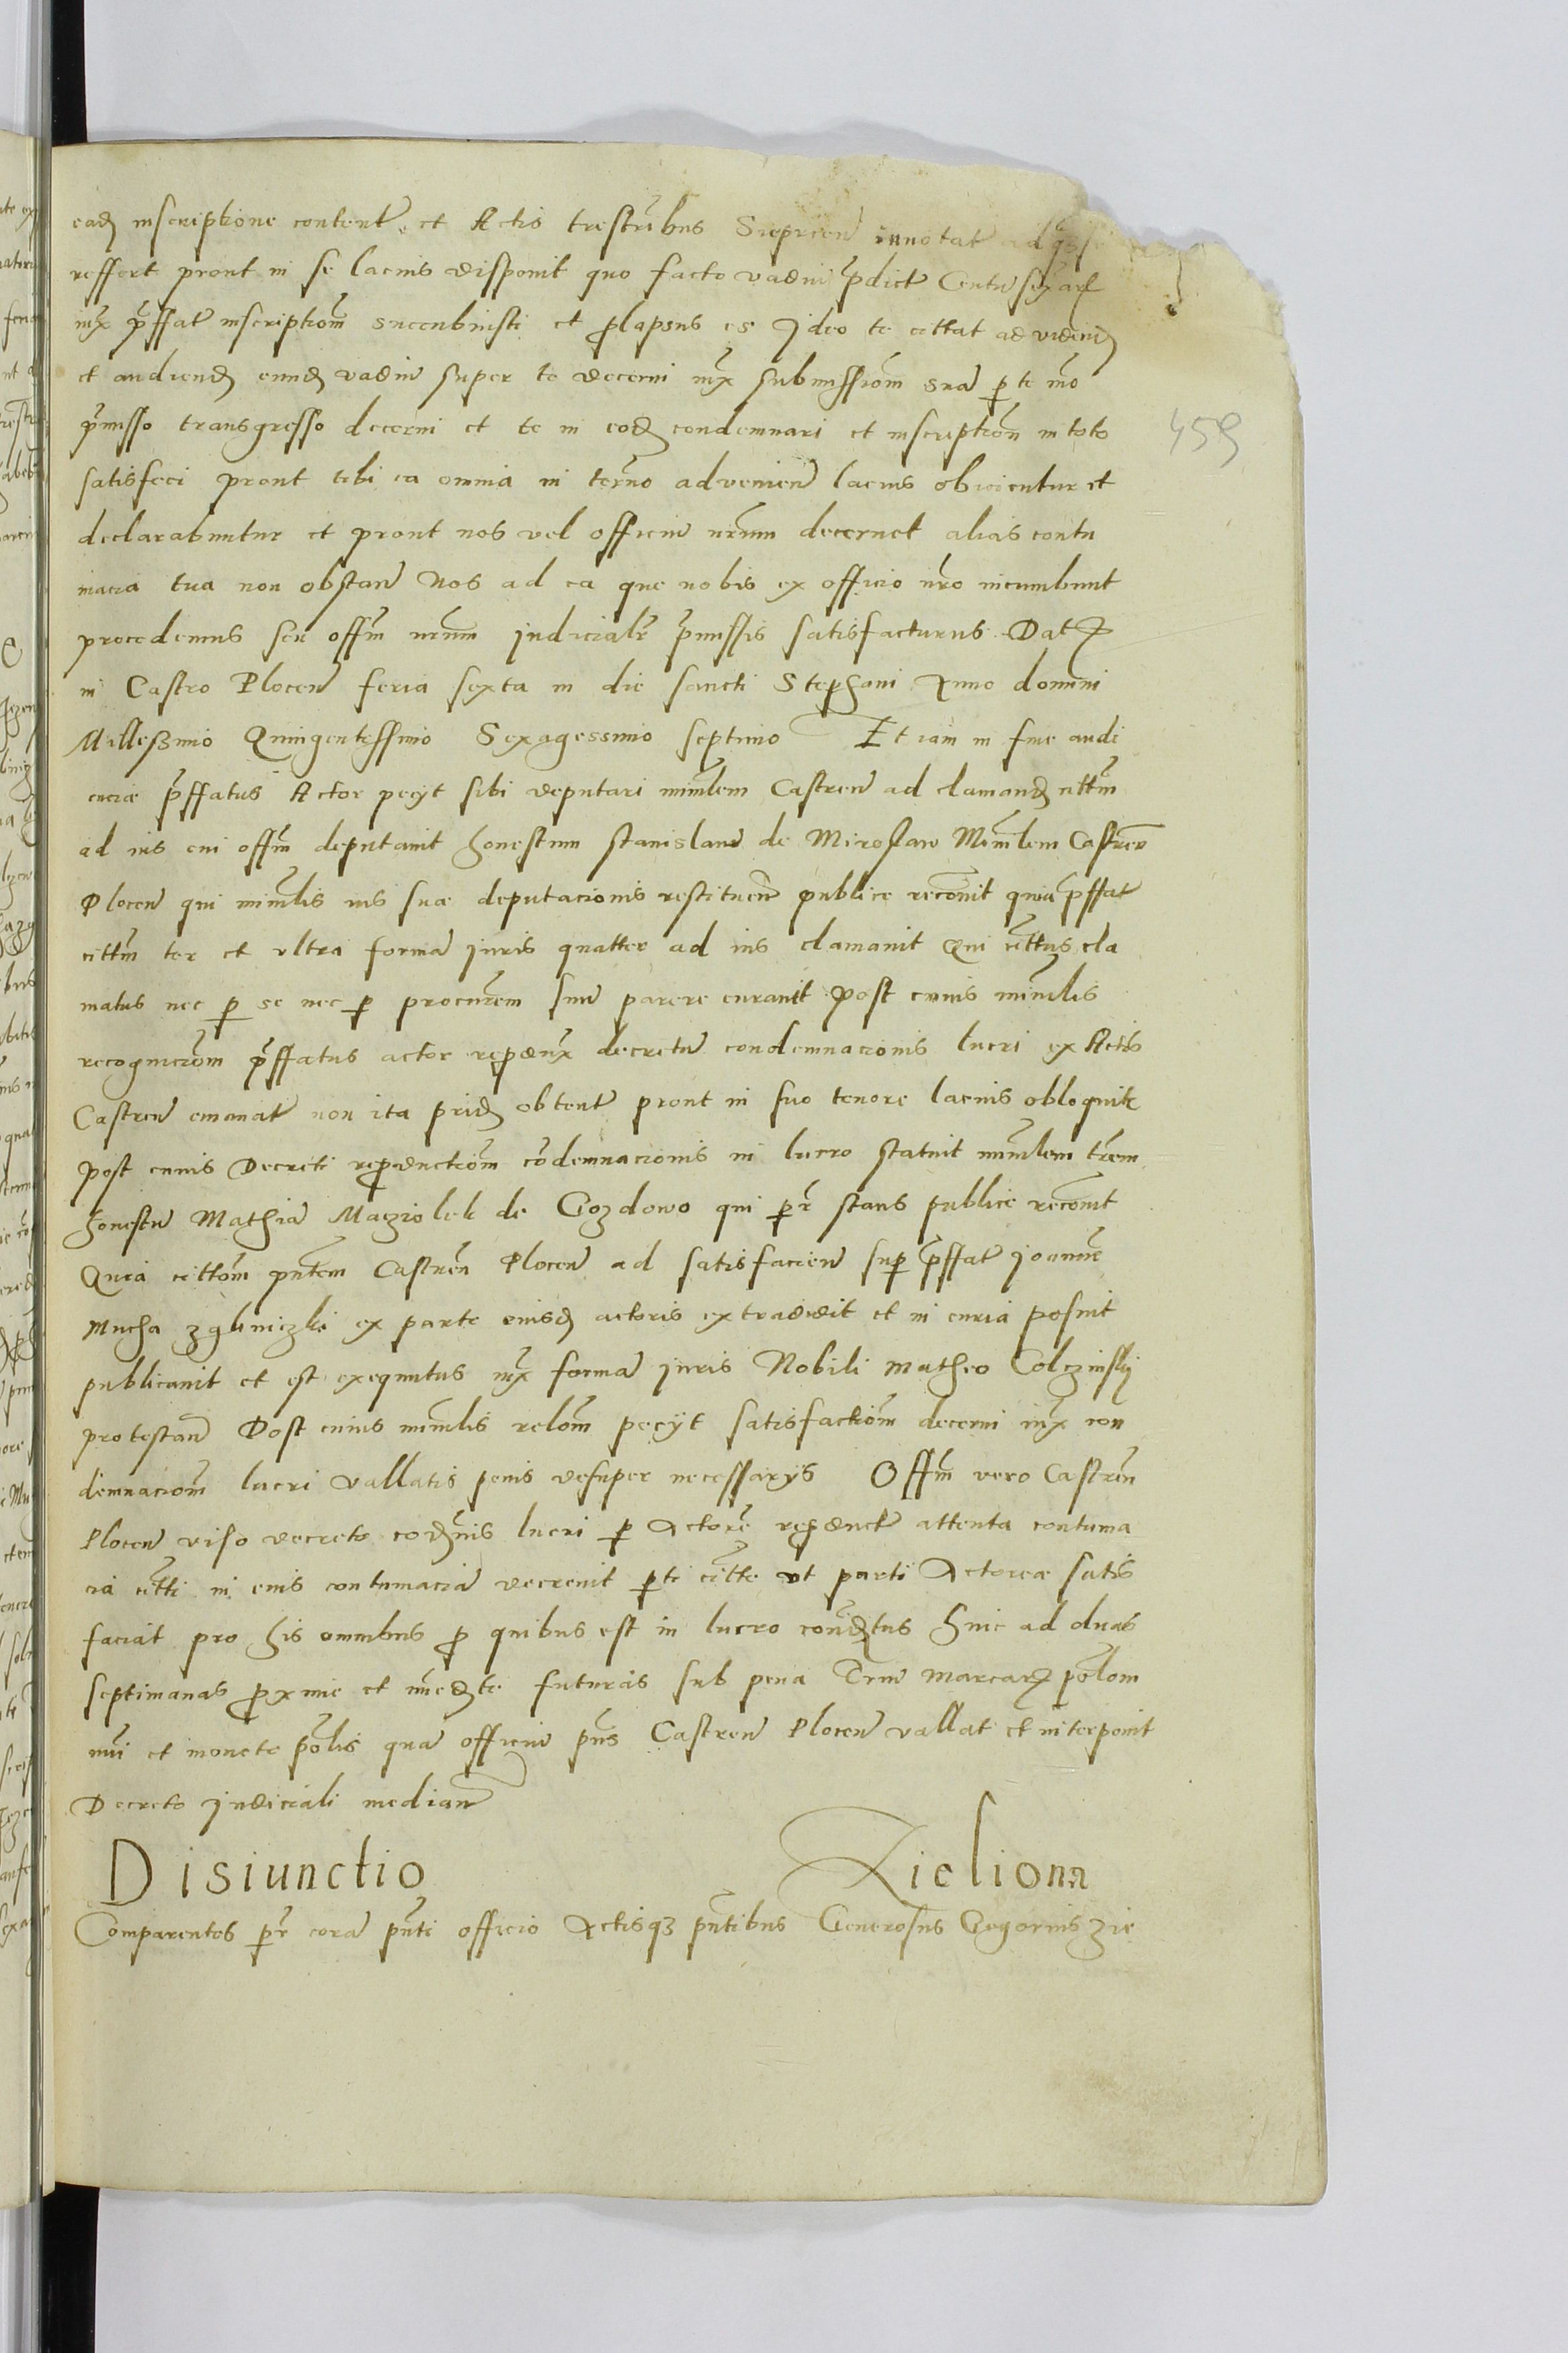 eadē inscriptione content. et Actis trestribus Sieprcen innotat ad
reffert prout in se lacius disponit quo facto vadiū p̄dict Centū sexag
iux p̄ffat inscriptiōm succubuisti et prolapsus es Ideo te cittat ad videnđ
et audienđ eundē vadiū super te decerni iux submissiōm suā p te mō
p̄misso transgresso decerni et te in eodē condemnari et inscriptioni in toto
satisfieri prout tibi ea omnia in termō advenien lacius obicientur et
declarabuntur et prout nos vel officiū nrūm decernet alias contu
macia tua non obstan Nos ad ea que nobis ex officio nro incumbunt
procedemus seu offm nrūm judicialr p̄missis satisfacturus Dat
in Castro Plocen feria sexta in die sancti Stephani Anno domini
Millessimo Quingentessimo Sexagessimo septimo Et iam in fine audi
enciæ p̄ffatus Actor pecÿt sibi deputari minrlem Castren ad clamanđ cittm
ad ius cui offm deputavit honestum stanislaū de Miroslaw Minrlem Castren
Plocen qui minrlis ius suæ deputacionis restituen publice recōvit quia p̄ffat
cittm ter et ultra formā juris quatter ad ius clamavit Qui cittus cla
matus nec p se nec p procurem suū parere curavit Post cuius minrlis
recognicōm p̄ffatus actor repdux decretū condemnacionis lucri ex Actis
Castren emanat non ita pridē obtent prout in suo tenore lacius obloquitr
Post cuius Decreti reproductiōm cōdemnacionis in lucro statuit minrlem trem
honestū Mathiā Maziolek de Gozdowo qui pr stans publice recōvit
Quia cittōm pntem Castren Plocen ad satisfacien sup p̄ffat joanne
Mucha zgliniczki ex parte eiusđ actoris extradidit et in curia posuit
publicavit et est exequutus iux formā juris Nobili Matheo Colczinskÿ
protestan Post cuius minrlis relōm pecÿt satisfactiōm decerni iux con
demnaciōm lucri vallatis penis desuper necessarÿs Offm vero Castren
Plocen viso decreto cōdemnis lucri p Actorē reproduct attenta contuma
cia citti in eius contumaciā decrevit pti citte ut parti Actoreæ satis
faciat pro his omnibus p quibus est in lucro convictus hinc ad duas
septimanas proxime et immedte futuras sub pena Triū marcarʒ polom
nūi et monete polis quā officiū pns Castren Plocen vallat et interponit
Decreto judiciali median
Disiunctio Zieliona
Comparentes pr corā pnti officio Actisqʒ pntibus Generosus Gregorius zie
459